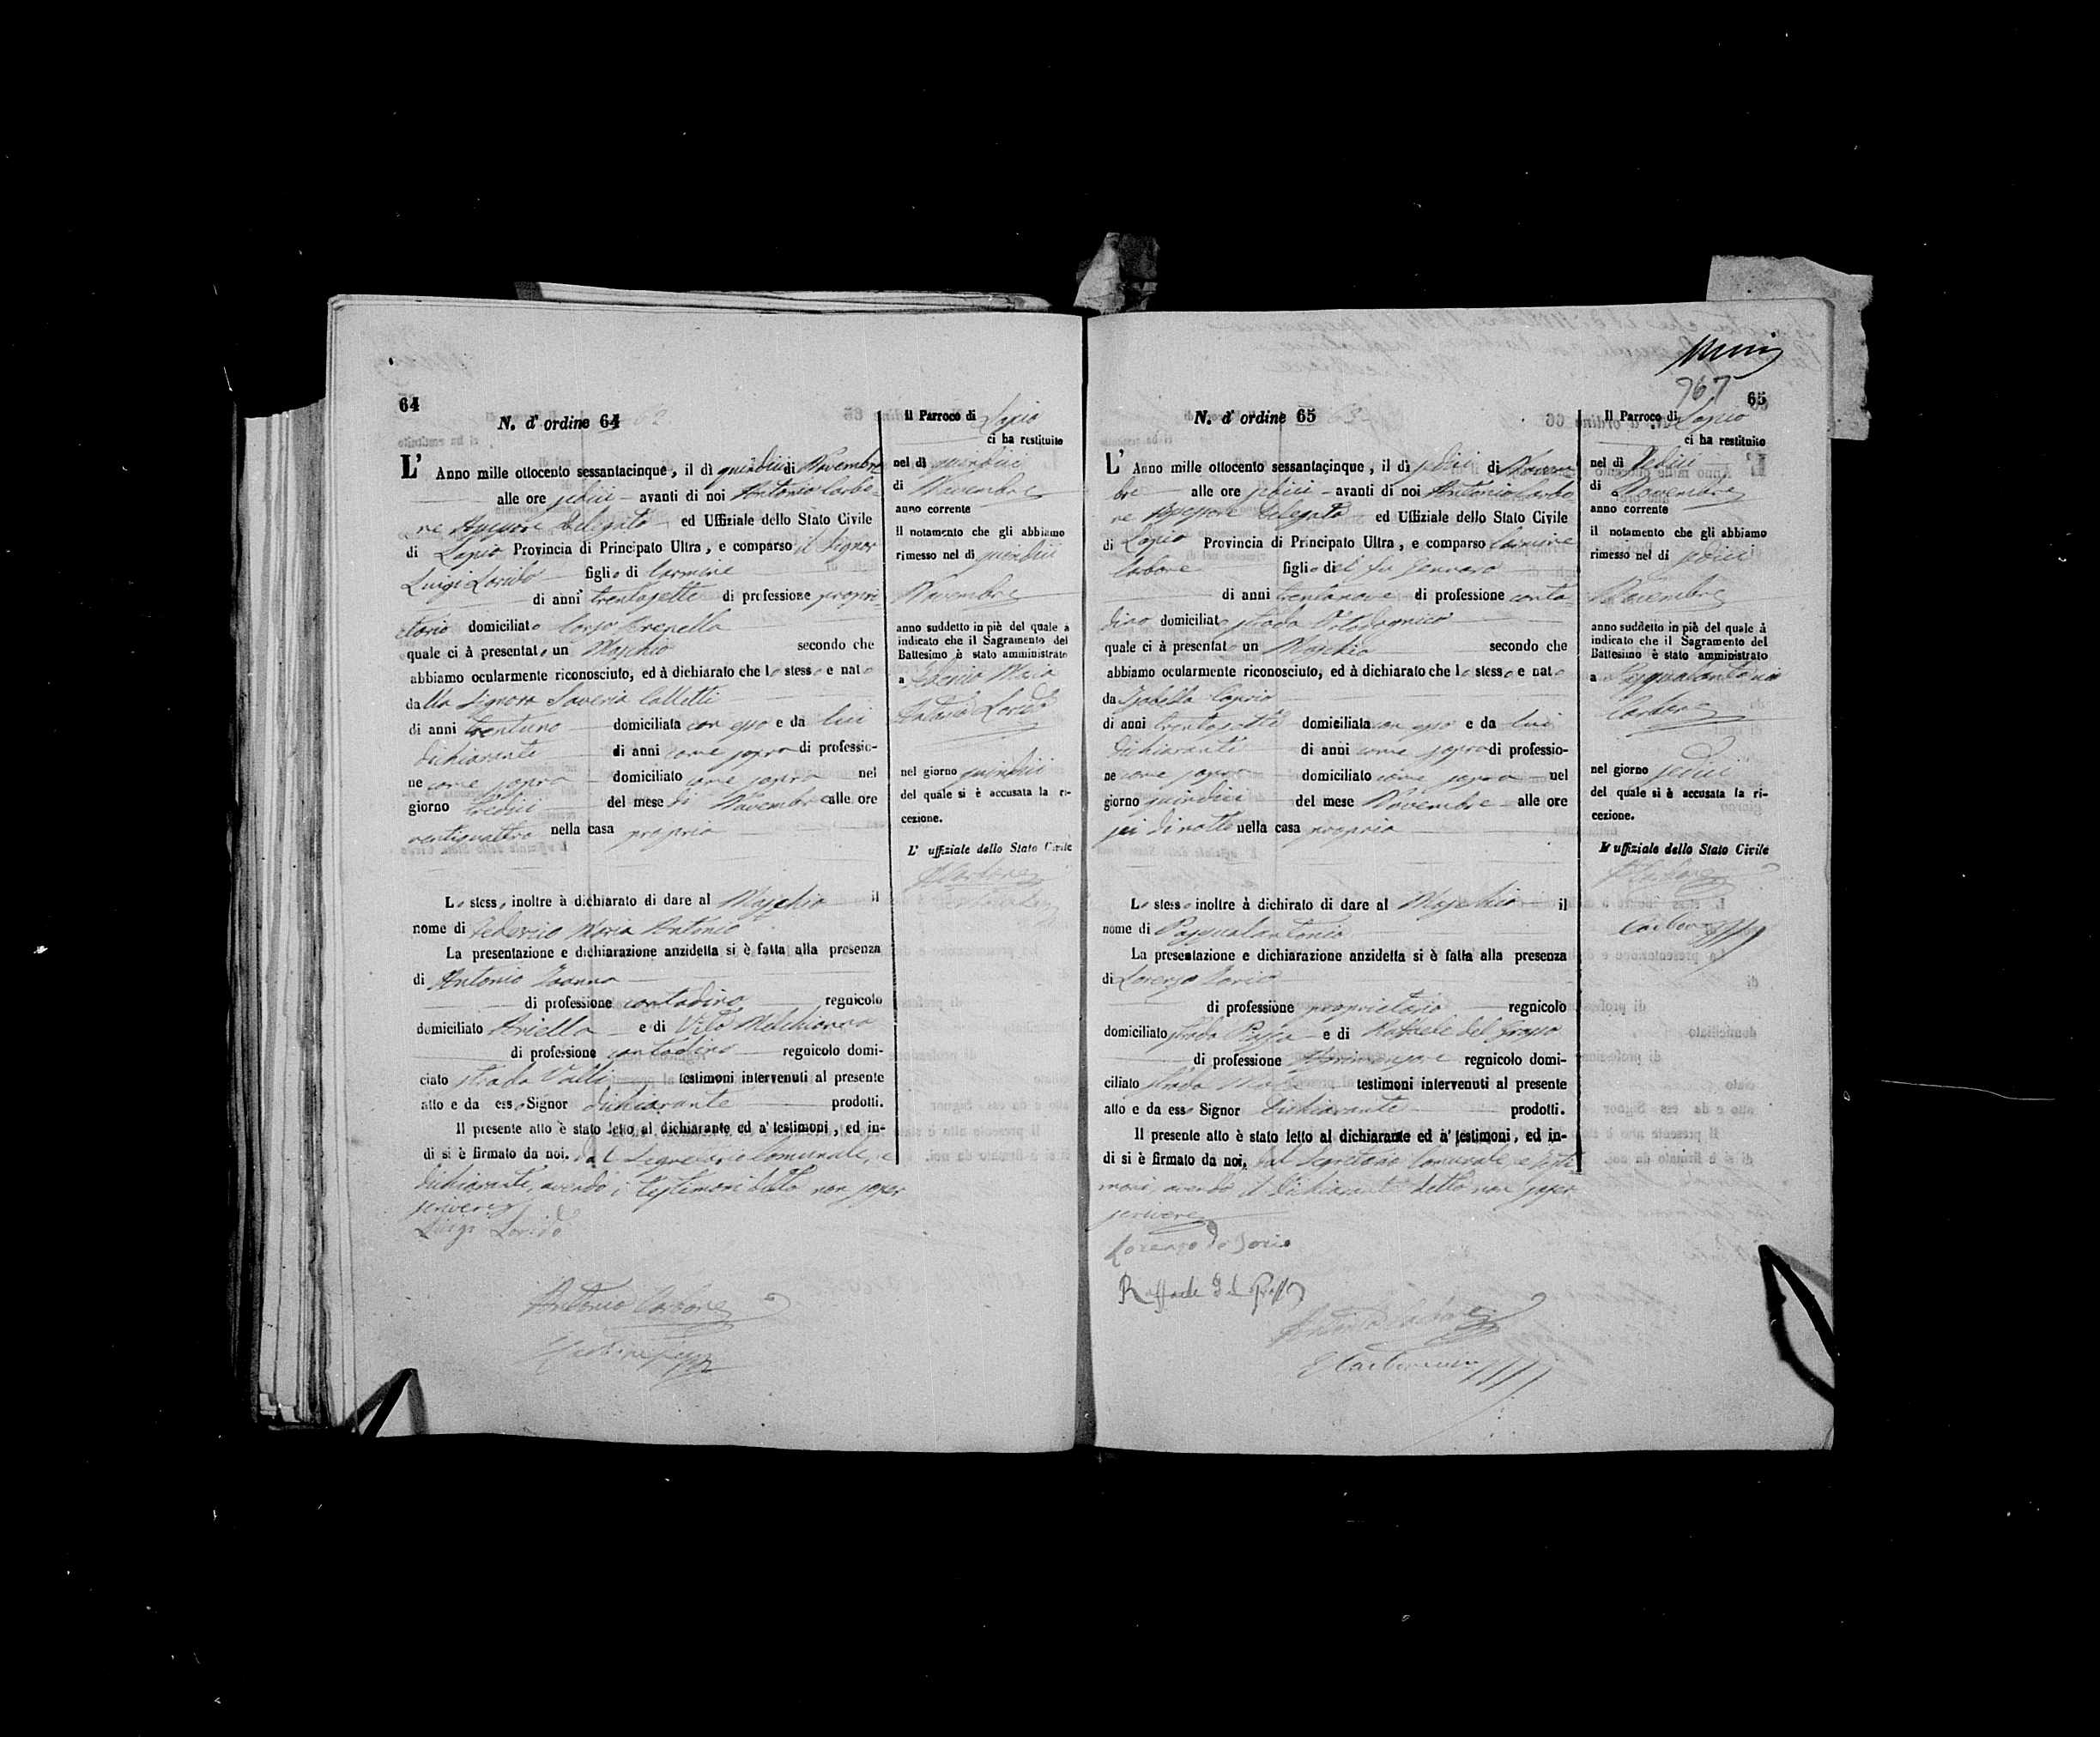 64
N. d' ordine 64
L' Anno mille ottocento sessantacinque, il dì quindici di Novembre
alle ore sedici avanti di noi Antonio Carbo-
ne Assessore Delegato ed Uffiziale dello Stato Civile
di Lapio Provincia di Principato Ultra, e comparso il Signor
Luigi figlio di Carmine
di anni trentasette di professione propri-
etario domiciliato Largo
quale ci à presentato un Maschio secondo che
abbiamo ocularmente riconosciuto, ed à dichiarato che lo stesso e nato
dalla Signora Saveria
di anni trentuno domiciliata con esso e da lui
dichiarante di anni come sopra di professio-
ne come sopra domiciliato come sopra nel
giorno tredici del mese di Novembre alle ore
ventiquattro nella casa propria
Lo stesso inoltre à dichiarato di dare al Maschio il
nome di Federico Maria Antonio
La presentazione e dichiarazione anzidetta si è fatta alla presenza
di Antonio
di professione contadino regnicolo
domiciliato Ariella e di Vito Melchionna
di professione contadino regnicolo domi-
ciato strada Valli testimoni intervenuti al presente
atto e da esso Signor dichiarante prodotti.
Il presente atto è stato letto al dichiarante ed a' testimoni, ed in-
di si è firmato da noi, dal Segretario Comunale, e
dichiarante, avendo i testimoni detto non saper
scrivere
Luigi
Antonio Carbone
Il Parroco di Lapio
ci ha restituito
nel dì quindici
di Novembre
anno corrente
il notamento che gli abbiamo
rimesso nel dì quindici
Novembre
anno suddetto in piè del quale à
indicato che il Sagramento del
Battesimo è stato amministrato
a Federico Maria
Antonio
nel giorno quindici
del quale si è accusata la ri-
cezione.
L' uffiziale dello Stato Civile
A Carbone
767
65
N. d' ordine 65
L' Anno mille ottocento sessantacinque, il dì sedici di Novem
bre alle ore sedici avanti di noi Antonio Carbo
ne Assessore Delegato ed Uffiziale dello Stato Civile
di Lapio Provincia di Principato Ultra, e comparso Carmine
Carbone figlio del fu Gennaro
di anni trentanove di professione conta
dino domiciliato strada
quale ci à presentato un Maschio secondo che
abbiamo ocularmente riconosciuto, ed à dichiarato che lo stesso e nato
da Isabella Caprio
di anni trentasette domiciliata con esso e da lui
dichiarante di anni come sopra di professio-
ne come sopra domiciliato come sopra nel
giorno quindici del mese Novembre alle ore
sei di notte nella casa propria
Lo stesso inoltre à dichirato di dare al Maschio il
nome di Pasqualantonio
La presentazione e dichiarazione anzidetta si è fatta alla presenza
di Lorenzo
di professione proprietario regnicolo
domiciliato strada Piazza e di Raffaele del Grosso
di professione regnicolo domi-
ciliato strada testimoni intervenuti al presente
atto e da esso Signor Dichiarante prodotti.
Il presente atto è stato letto al dichiarante ed a' testimoni, ed in-
di si è firmato da noi, dal Segretario Comunale, e testi
moni, avendo il dichiarante detto non saper
scrivere
Lorenzo
Raffaele del Grosso
Antonio Carbone
Il Parroco di Lapio
ci ha restituito
nel dì Sedici
di Novembre
anno corrente
il notamento che gli abbiamo
rimesso nel dì sedici
Novembre
anno suddetto in piè del quale à
indicato che il Sagramento del
Battesimo è stato amministrato
a Pasqualantonio
Carbone
nel giorno sedici
del quale si è accusata la ri-
cezione.
L' uffiziale dello Stato Civile
A Carbone